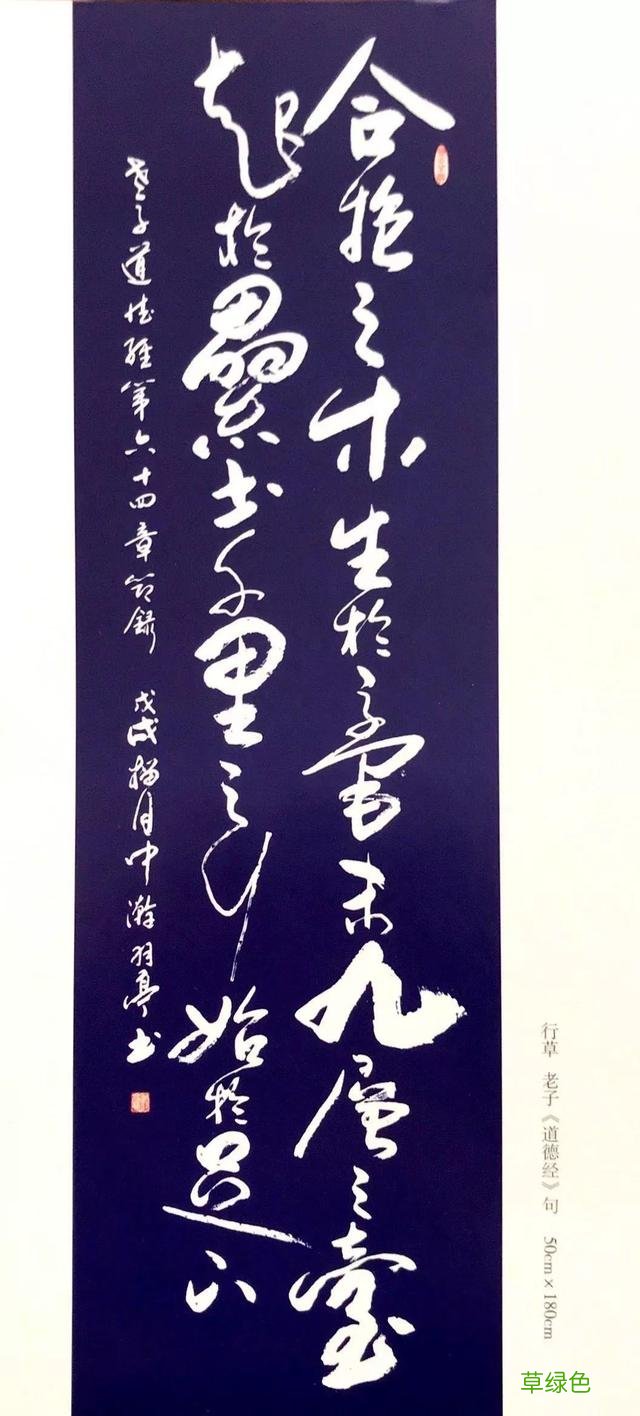 合抱之木生於毫末九層之臺
起於累土千里之行始於足下
老子道德經第六十四章節錄 戊戌腊月中瀚羽亭书
行草 老子《道德经》句 50cm×180cm
草绿色